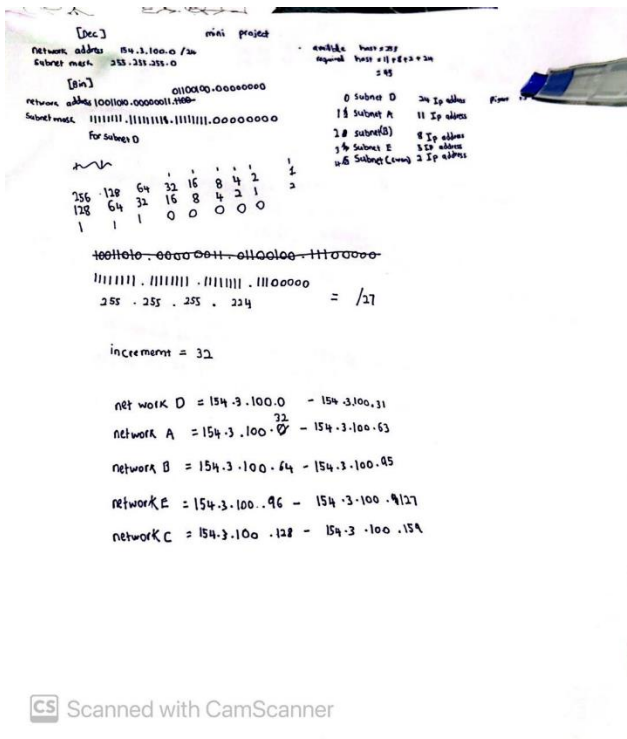 [Dec]
mini project
network address 154.3.100.0 /24
Subnet mask 255.255.255.0
[Bin]
01100100.00000000
network addres 10011010.00000011.
Subnet mask 11111111.11111111.11111111.00000000
For subnet D
host = 11+8+2+24
= 45
0 subnet D 24 Ip addres
1 subnet A 11 Ip address
2 subnet(B) 8 Ip addres
3 Subnet E
Subnet 2 Ip address
256 128 64 32 16 8 4 2
128 64 32 16 8 4 2 1
1 1 1 0 0 0 0 0
10011010.00000011.01100100.11100000
11111111.11111111.11111111.11100000
255 . 255 . 255 . 224 = /27
increment = 32
net work D = 154.3.100.0 - 154.3.100.31
32
network A = 154.3.100. - 154.3.100.63
network B = 154.3.100.64 - 154.3.100.95
network E = 154.3.100..96 - 154.3.100.127
network C = 154.3.100.128 - 154.3.100.159
CS Scanned with CamScanner